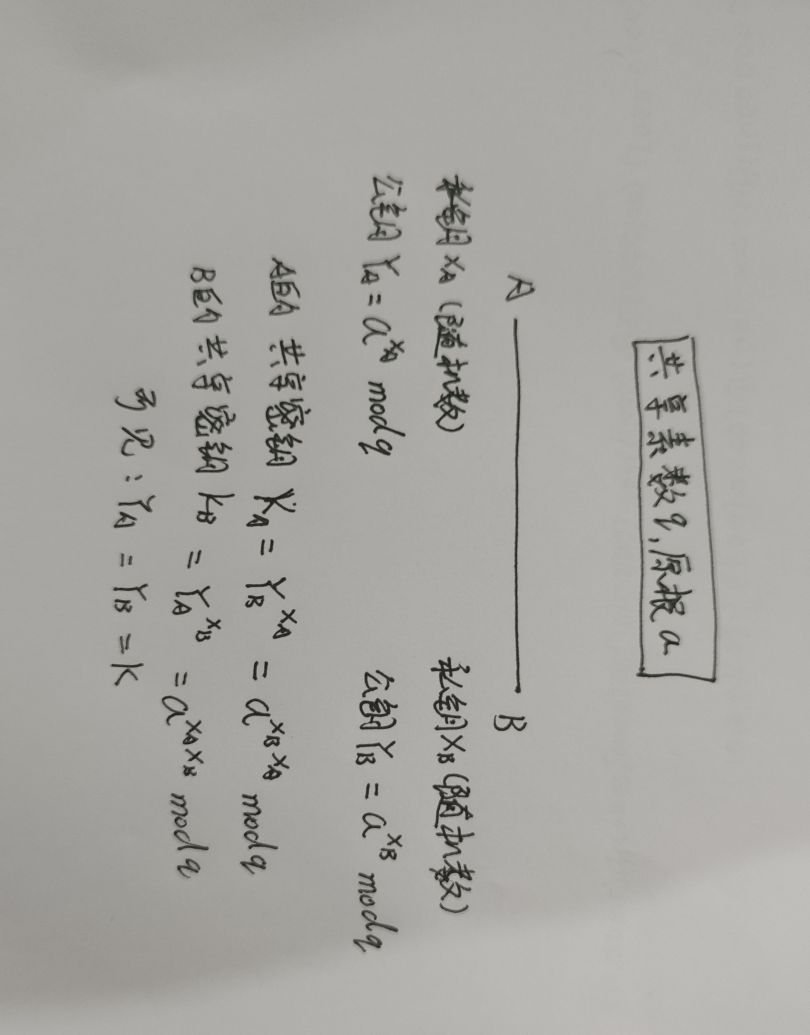 共享素数q,原根a
A B
私钥 XA (随机数) 私钥 XB (随机数)
公钥 YA = a^XA mod q 公钥 YB = a^XB mod q
A的 共享密钥 KA = YB^XA = a^XBXA mod q
B的 共享密钥 kB = YA^XB = a^XAXB mod q
可见: YA = YB = K